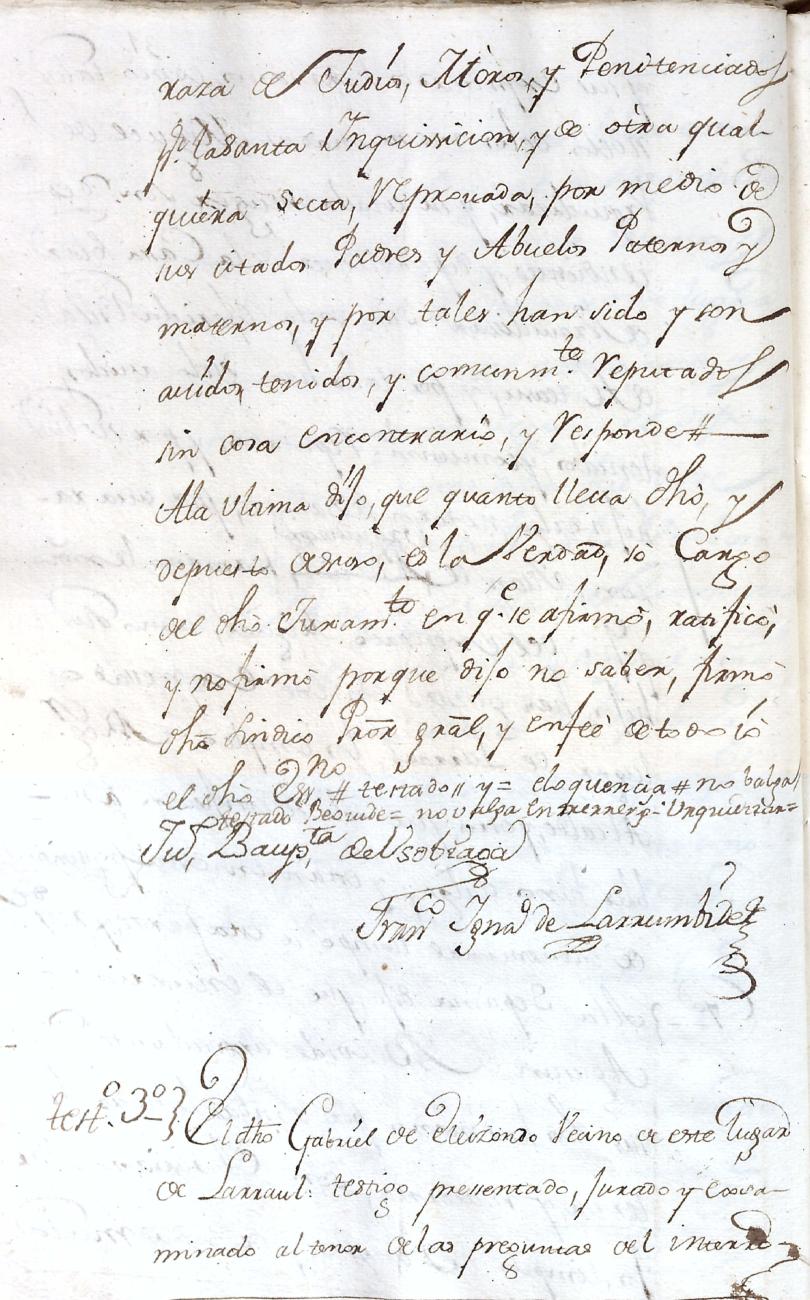 raza de Judíos, Moros, y Penitenciados
pr. la Santa Inquissicion, y de otra qual-
quiera secta, Reprovada, por medio de
sus citados Padres y Abuelos Paternos y
maternos, y por tales han sido y son
avidos, tenidos, y comunmte. Reputados
sin cosa encontrario, y Responde #
Ala Ultima dijo, que quanto lleva dho, y
depuesto de suso, es la Verdad, so Cargo
del dho. Juramto. en qe. se afirmò, ratificò,
y no firmò porque dijo no saber, firmò
dho Sindico Pror gral, y enfeè de todo io
el dho Essno # testado y = eloquencia # no balga
testado = no valga Entrerrengs =
Ju, Baupta, de Usobiaga
Franco Ignao de Larrumbide
testo. 3o } El dho Gabriel de Eleizondo Vecino de este Lugar
de Larraul: testigo pressentado, jurado y exsa-
minado al tenor de las preguntas del interro-